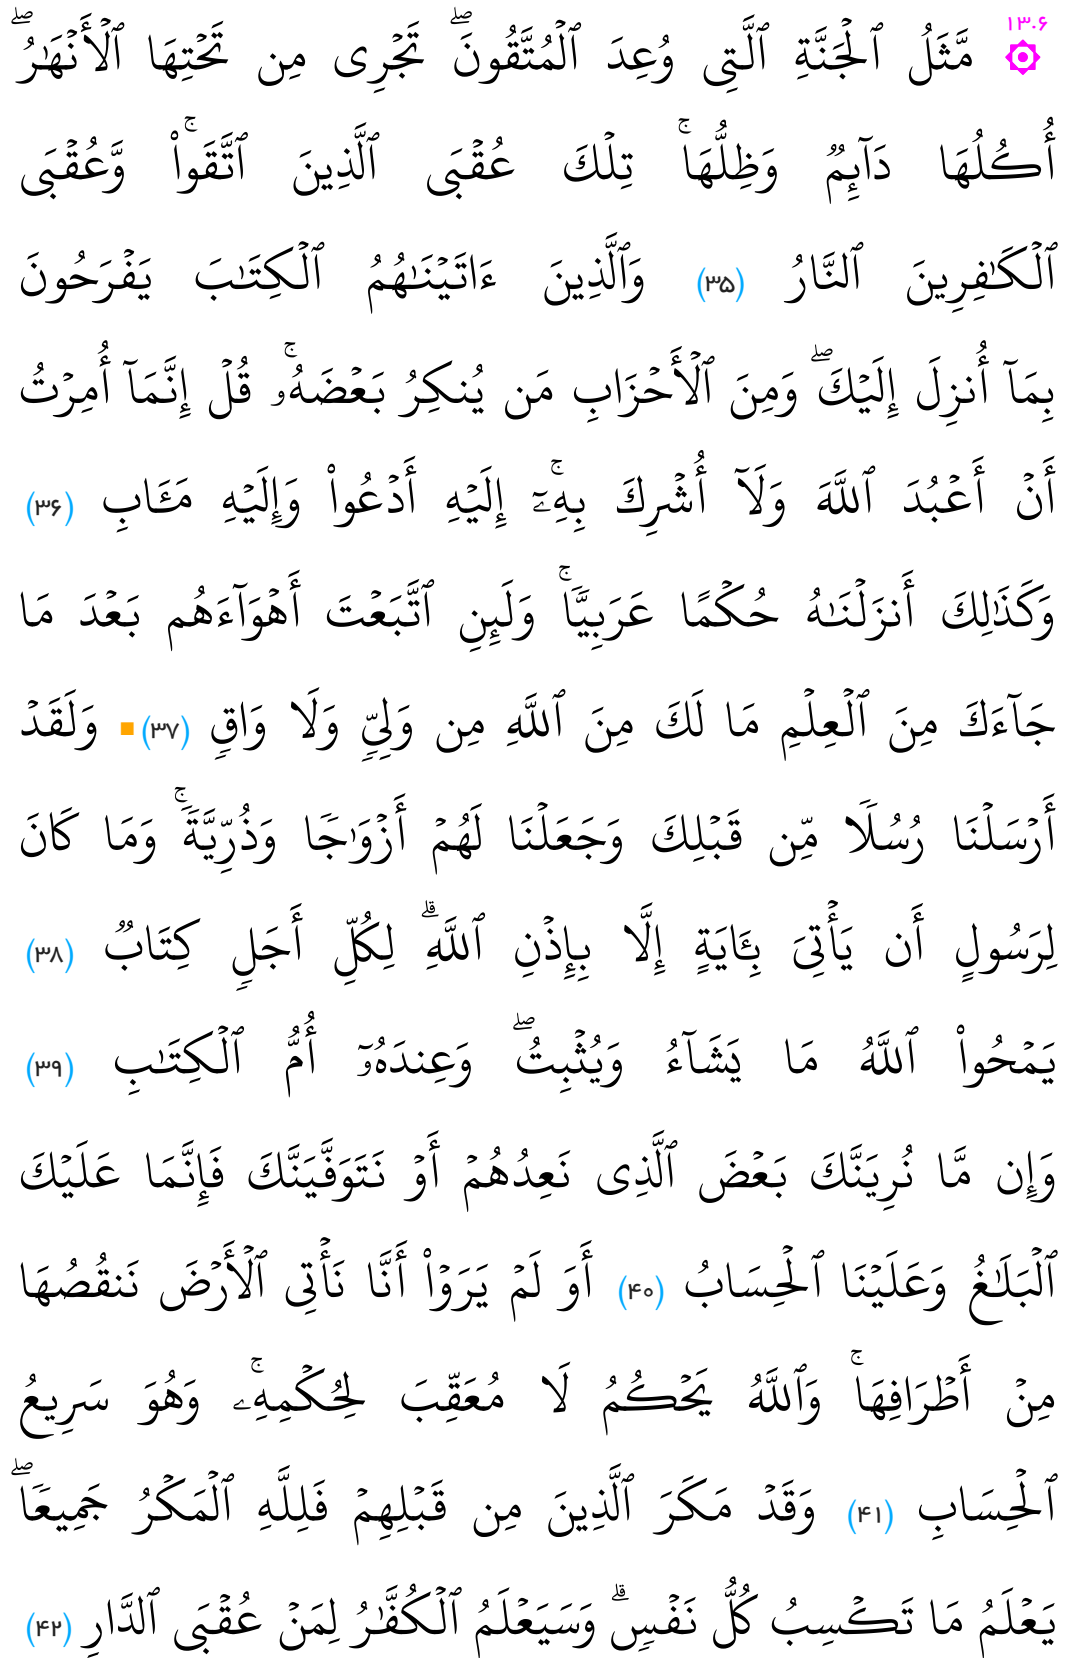 ۱۳۰۶
۞ مَّثَلُ ٱلْجَنَّةِ ٱلَّتِى وُعِدَ ٱلْمُتَّقُونَ ۖ تَجْرِى مِن تَحْتِهَا ٱلْأَنْهَٰرُ ۖ
أُكُلُهَا دَآئِمٌ وَظِلُّهَا ۚ تِلْكَ عُقْبَى ٱلَّذِينَ ٱتَّقَوا۟ ۚ وَّعُقْبَى
ٱلْكَٰفِرِينَ ٱلنَّارُ (۳۵) وَٱلَّذِينَ ءَاتَيْنَٰهُمُ ٱلْكِتَٰبَ يَفْرَحُونَ
بِمَآ أُنزِلَ إِلَيْكَ ۖ وَمِنَ ٱلْأَحْزَابِ مَن يُنكِرُ بَعْضَهُۥ ۚ قُلْ إِنَّمَآ أُمِرْتُ
أَنْ أَعْبُدَ ٱللَّهَ وَلَآ أُشْرِكَ بِهِۦٓ ۚ إِلَيْهِ أَدْعُوا۟ وَإِلَيْهِ مَـَٔابِ (۳۶)
وَكَذَٰلِكَ أَنزَلْنَٰهُ حُكْمًا عَرَبِيًّا ۚ وَلَئِنِ ٱتَّبَعْتَ أَهْوَآءَهُم بَعْدَ مَا
جَآءَكَ مِنَ ٱلْعِلْمِ مَا لَكَ مِنَ ٱللَّهِ مِن وَلِىٍّ وَلَا وَاقٍ (۳۷) وَلَقَدْ
أَرْسَلْنَا رُسُلًا مِّن قَبْلِكَ وَجَعَلْنَا لَهُمْ أَزْوَٰجًا وَذُرِّيَّةً ۚ وَمَا كَانَ
لِرَسُولٍ أَن يَأْتِىَ بِـَٔايَةٍ إِلَّا بِإِذْنِ ٱللَّهِ ۗ لِكُلِّ أَجَلٍ كِتَابٌ (۳۸)
يَمْحُوا۟ ٱللَّهُ مَا يَشَآءُ وَيُثْبِتُ ۖ وَعِندَهُۥٓ أُمُّ ٱلْكِتَٰبِ (۳۹)
وَإِن مَّا نُرِيَنَّكَ بَعْضَ ٱلَّذِى نَعِدُهُمْ أَوْ نَتَوَفَّيَنَّكَ فَإِنَّمَا عَلَيْكَ
ٱلْبَلَٰغُ وَعَلَيْنَا ٱلْحِسَابُ (۴۰) أَوَ لَمْ يَرَوْا۟ أَنَّا نَأْتِى ٱلْأَرْضَ نَنقُصُهَا
مِنْ أَطْرَافِهَا ۚ وَٱللَّهُ يَحْكُمُ لَا مُعَقِّبَ لِحُكْمِهِۦ ۚ وَهُوَ سَرِيعُ
ٱلْحِسَابِ (۴۱) وَقَدْ مَكَرَ ٱلَّذِينَ مِن قَبْلِهِمْ فَلِلَّهِ ٱلْمَكْرُ جَمِيعًا ۖ
يَعْلَمُ مَا تَكْسِبُ كُلُّ نَفْسٍ ۗ وَسَيَعْلَمُ ٱلْكُفَّٰرُ لِمَنْ عُقْبَى ٱلدَّارِ (۴۲)